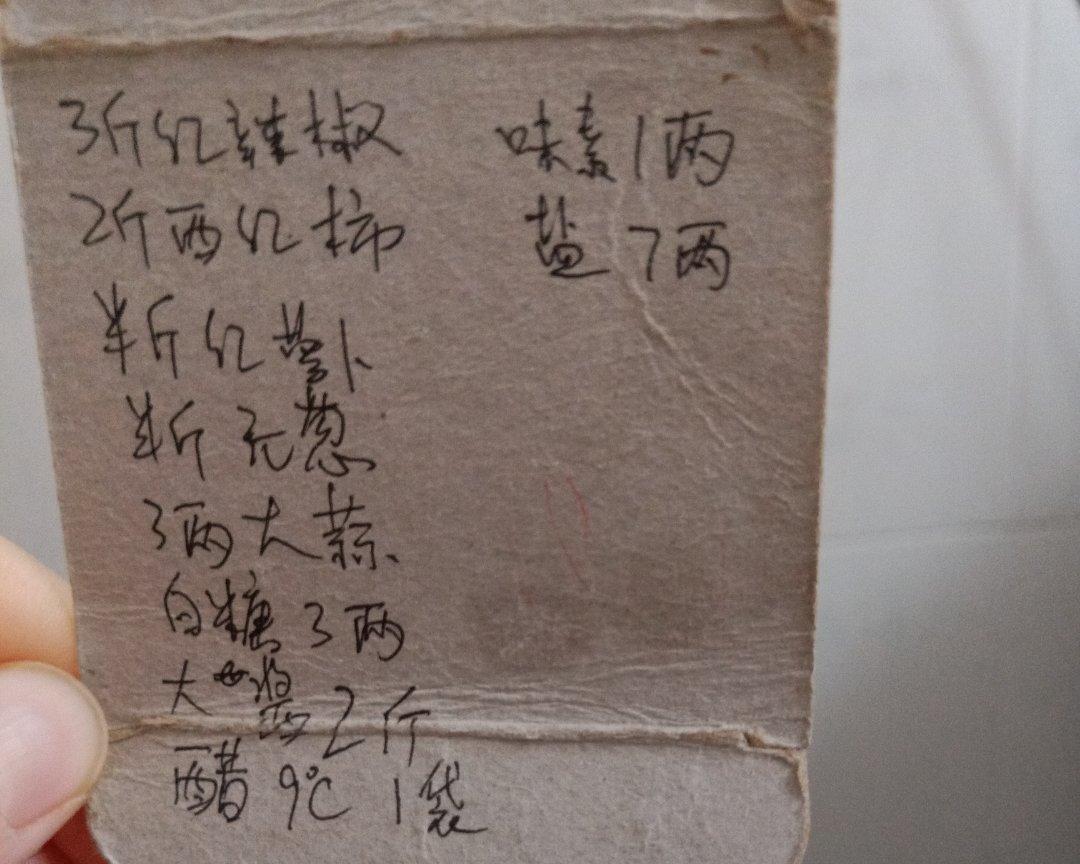 3斤红辣椒
2斤西红柿
半斤红萝卜
半斤元葱
3两大蒜
白糖3两
大酱2斤
醋9℃ 1袋
味素1两
盐7两